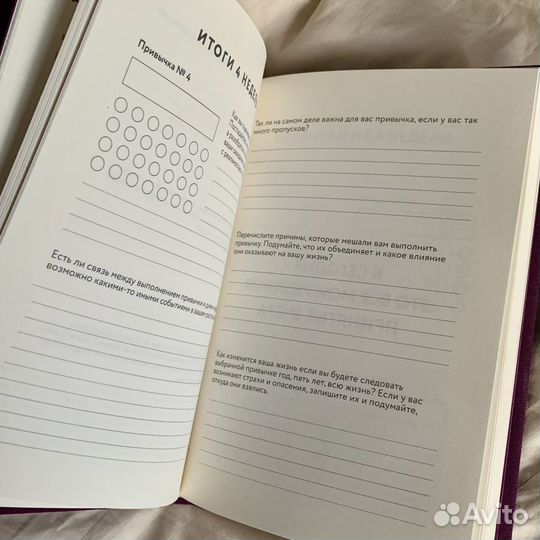 ИТОГИ 4 НЕДЕ
Привычка № 4
с реально
Есть ли связь между выполнением привычки и
возможно какими-то иными событиями в вашем
Так ли на самом деле важна для вас привычка, если у вас так
много пропусков?
Перечислите причины, которые мешали вам выполнить
привычку. Подумайте, что их объединяет и какое влияние
они оказывают на вашу жизнь?
Как изменится ваша жизнь если вы будете следовать
выбранной привычке год, пять лет, всю жизнь? Если у вас
возникают страхи и опасения, запишите их и подумайте,
откуда они взялись.
Avito